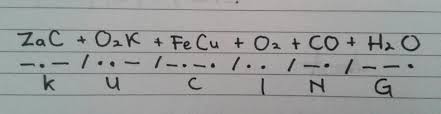 ZaC + O2K + FeCu + O2 + CO + H2O
-.- / ..- / -.-. / .. / -. / --.
K U C I N G